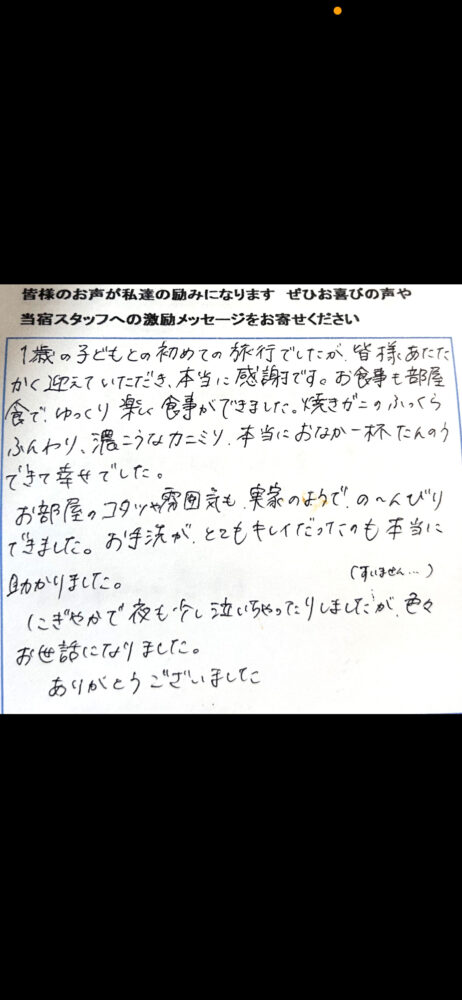 皆様のお声が私達の励みになります ぜひお喜びの声や
当宿スタッフへの激励メッセージをお寄せください
1歳の子どもとの初めての旅行でしたが、皆様あたた
かく迎えていただき、本当に感謝です。お食事も部屋
食で、ゆっくり楽しく食事ができました。焼きガニのふっくら
ふんわり、濃こうなカニミソ、本当におなか一杯たんのう
できて幸せでした。
お部屋のコタツや雰囲気も、実家のようで、の〜んびり
できました。お手洗が、とてもキレイだったのも本当に
助かりました。
(すいません…)
にぎやかで夜も少し泣いちゃったりしましたが、色々
お世話になりました。
ありがとうございました